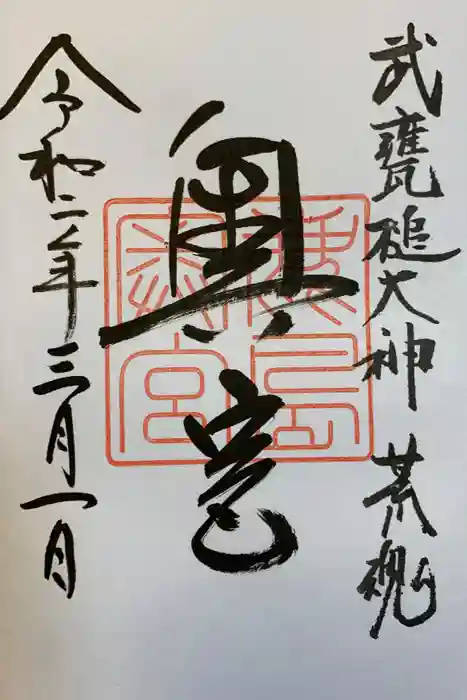 武甕槌大神 荒魂
奥宮
鹿島
奥宮
令和二年三月一日